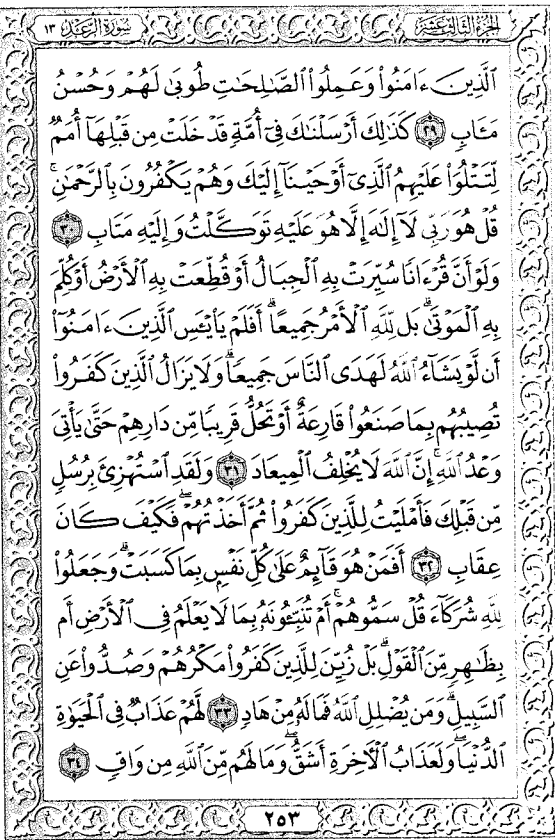 سُورَةُ الرَّعْدِ ١٣
الجُزْءُ الثَّالِثَ عَشَرَ
ٱلَّذِينَ ءَامَنُوا۟ وَعَمِلُوا۟ ٱلصَّٰلِحَٰتِ طُوبَىٰ لَهُمْ وَحُسْنُ
مَـَٔابٍ ٢٩ كَذَٰلِكَ أَرْسَلْنَٰكَ فِىٓ أُمَّةٍ قَدْ خَلَتْ مِن قَبْلِهَآ أُمَمٌ
لِّتَتْلُوَا۟ عَلَيْهِمُ ٱلَّذِىٓ أَوْحَيْنَآ إِلَيْكَ وَهُمْ يَكْفُرُونَ بِٱلرَّحْمَٰنِ ۚ
قُلْ هُوَ رَبِّى لَآ إِلَٰهَ إِلَّا هُوَ عَلَيْهِ تَوَكَّلْتُ وَإِلَيْهِ مَتَابِ ٣٠
وَلَوْ أَنَّ قُرْءَانًا سُيِّرَتْ بِهِ ٱلْجِبَالُ أَوْ قُطِّعَتْ بِهِ ٱلْأَرْضُ أَوْ كُلِّمَ
بِهِ ٱلْمَوْتَىٰ ۗ بَل لِّلَّهِ ٱلْأَمْرُ جَمِيعًا ۗ أَفَلَمْ يَا۟يْـَٔسِ ٱلَّذِينَ ءَامَنُوٓا۟
أَن لَّوْ يَشَآءُ ٱللَّهُ لَهَدَى ٱلنَّاسَ جَمِيعًا ۗ وَلَا يَزَالُ ٱلَّذِينَ كَفَرُوا۟
تُصِيبُهُم بِمَا صَنَعُوا۟ قَارِعَةٌ أَوْ تَحُلُّ قَرِيبًا مِّن دَارِهِمْ حَتَّىٰ يَأْتِىَ
وَعْدُ ٱللَّهِ ۚ إِنَّ ٱللَّهَ لَا يُخْلِفُ ٱلْمِيعَادَ ٣١ وَلَقَدِ ٱسْتُهْزِئَ بِرُسُلٍ
مِّن قَبْلِكَ فَأَمْلَيْتُ لِلَّذِينَ كَفَرُوا۟ ثُمَّ أَخَذْتُهُمْ ۖ فَكَيْفَ كَانَ
عِقَابِ ٣٢ أَفَمَنْ هُوَ قَآئِمٌ عَلَىٰ كُلِّ نَفْسٍۭ بِمَا كَسَبَتْ ۗ وَجَعَلُوا۟
لِلَّهِ شُرَكَآءَ قُلْ سَمُّوهُمْ ۚ أَمْ تُنَبِّـُٔونَهُۥ بِمَا لَا يَعْلَمُ فِى ٱلْأَرْضِ أَم
بِظَٰهِرٍ مِّنَ ٱلْقَوْلِ ۗ بَلْ زُيِّنَ لِلَّذِينَ كَفَرُوا۟ مَكْرُهُمْ وَصُدُّوا۟ عَنِ
ٱلسَّبِيلِ ۗ وَمَن يُضْلِلِ ٱللَّهُ فَمَا لَهُۥ مِنْ هَادٍ ٣٣ لَّهُمْ عَذَابٌ فِى ٱلْحَيَوٰةِ
ٱلدُّنْيَا ۖ وَلَعَذَابُ ٱلْأَخِرَةِ أَشَقُّ ۖ وَمَا لَهُم مِّنَ ٱللَّهِ مِن وَاقٍ ٣٤
٢٥٣